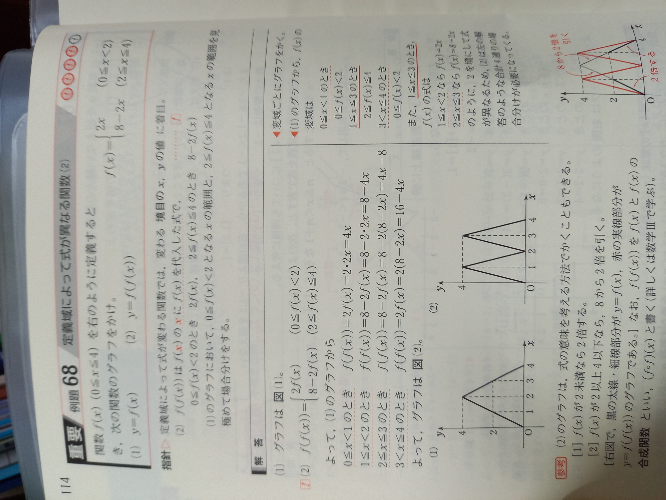 114
重要 例題 68 定義域によって式が異なる関数 (2)
関数 f(x) (0≦x≦4) を右のように定義すると
き，次の関数のグラフをかけ。
(1) y=f(x) (2) y=f(f(x))
f(x)={2x (0≦x<2)
8-2x (2≦x≦4)
指針 定義域によって式が変わる関数では，変わる 境目の x，y の値 に着目。
(2) f(f(x)) は f(x) の x に f(x) を代入した式で，
0≦f(x)<2 のとき 2f(x)， 2≦f(x)≦4 のとき 8-2f(x)
(1) のグラフにおいて，0≦f(x)<2 となる x の範囲と，2≦f(x)≦4 となる x の範囲を見
極めて場合分けをする。
解答
(1) グラフは 図(1)。
(2) f(f(x))={2f(x) (0≦f(x)<2)
8-2f(x) (2≦f(x)≦4)
よって，(1) のグラフから
0≦x<1 のとき f(f(x))=2f(x)=2・2x=4x
1≦x<2 のとき f(f(x))=8-2f(x)=8-2・2x=8-4x
2≦x≦3 のとき f(f(x))=8-2f(x)=8-2(8-2x)=4x-8
3<x≦4 のとき f(f(x))=2f(x)=2(8-2x)=16-4x
よって，グラフは 図(2)。
(1)
y
4
2
O
1 2 3 4
x
(2)
y
4
O
1 2 3 4
x
◀変域ごとにグラフをかく。
◀(1) のグラフから，f(x) の
変域は
0≦x<1 のとき
0≦f(x)<2
1≦x≦3 のとき
2≦f(x)≦4
3<x≦4 のとき
0≦f(x)<2
また，1≦x≦3 のとき，
f(x) の式は
1≦x<2 なら f(x)=2x
2≦x≦3 なら f(x)=8-2x
のように，2 を境にして式
が異なるため，(2) は左の解
答のような合計 4 通りの場
合分けが必要になってくる。
参考 (2) のグラフは，式の意味を考える方法でかくこともできる。
[1] f(x) が 2 未満なら 2 倍する。
[2] f(x) が 2 以上 4 以下なら，8 から 2 倍を引く。
[右図で，黒の太線・細線部分が y=f(x)，赤の実線部分が
y=f(f(x)) のグラフである。] なお，f(f(x)) を f(x) と f(x) の
合成関数 といい，(f∘f)(x) と書く (詳しくは数学Ⅲで学ぶ)。
8から2倍を
引く
2倍する
y
4
2
O
4
x